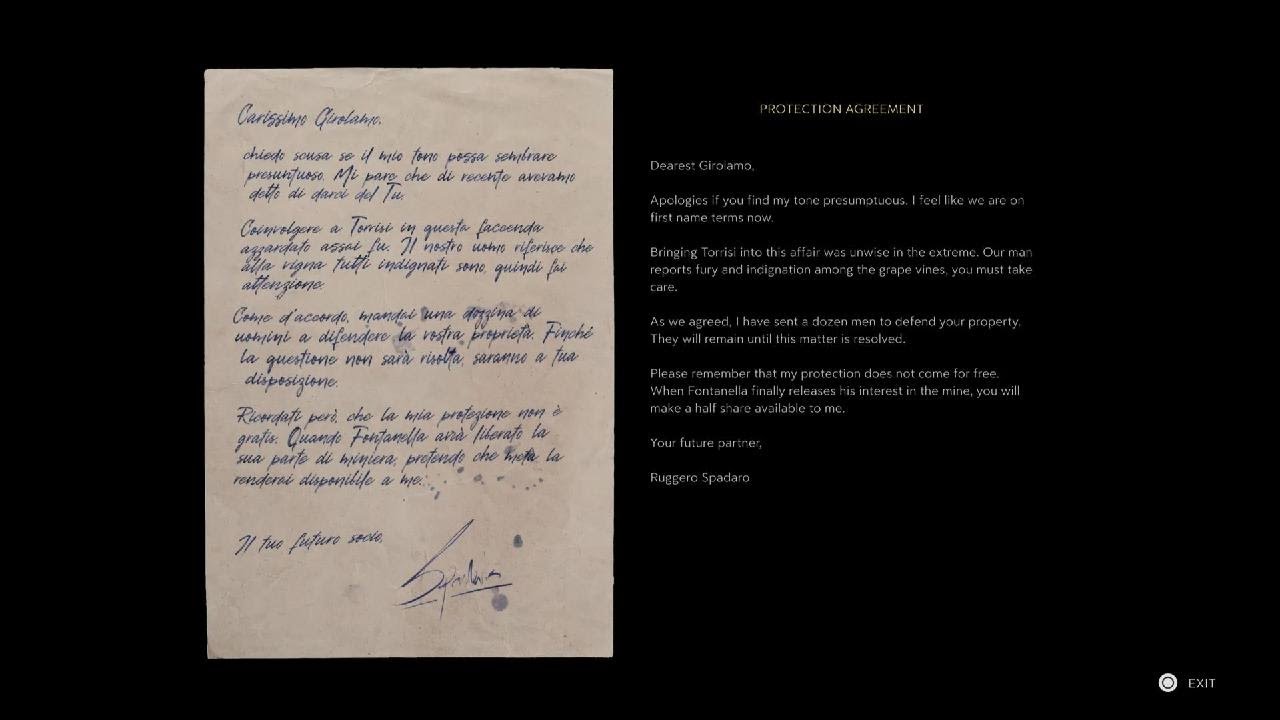 Carissimo Girolamo,
chiedo scusa se il mio tono possa sembrare
presuntuoso. Mi pare che di recente avevamo
detto di darci del Tu.
Coinvolgere a Torrisi in questa faccenda
azzardato assai fu. Il nostro uomo riferisce che
alla vigna tutti indignati sono, quindi fai
attenzione.
Come d'accordo, mandai una dozzina di
uomini a difendere la vostra proprietà. Finché
la questione non sarà risolta, saranno a tua
disposizione.
Ricordati però, che la mia protezione non è
gratis. Quando Fontanella avrà liberato la
sua parte di miniera, pretendo che metà la
renderai disponibile a me.
Il tuo futuro socio,
PROTECTION AGREEMENT
Dearest Girolamo,
Apologies if you find my tone presumptuous. I feel like we are on
first name terms now.
Bringing Torrisi into this affair was unwise in the extreme. Our man
reports fury and indignation among the grape vines, you must take
care.
As we agreed, I have sent a dozen men to defend your property.
They will remain until this matter is resolved.
Please remember that my protection does not come for free.
When Fontanella finally releases his interest in the mine, you will
make a half share available to me.
Your future partner,
Ruggero Spadaro
EXIT